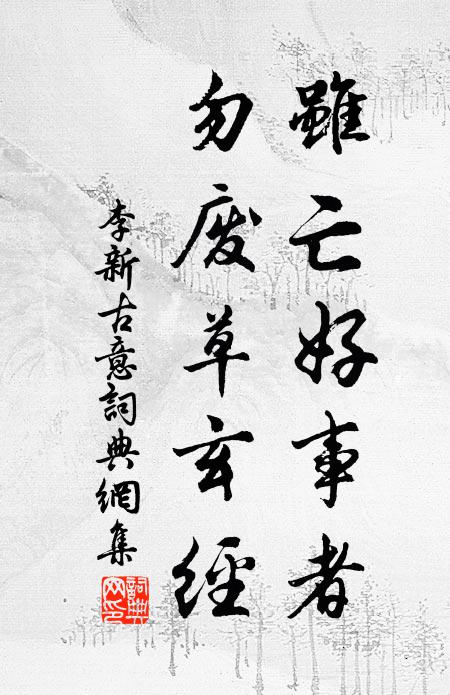 雖亡好事者
勿废草玄經
李新古意詞典網集
詞典网印